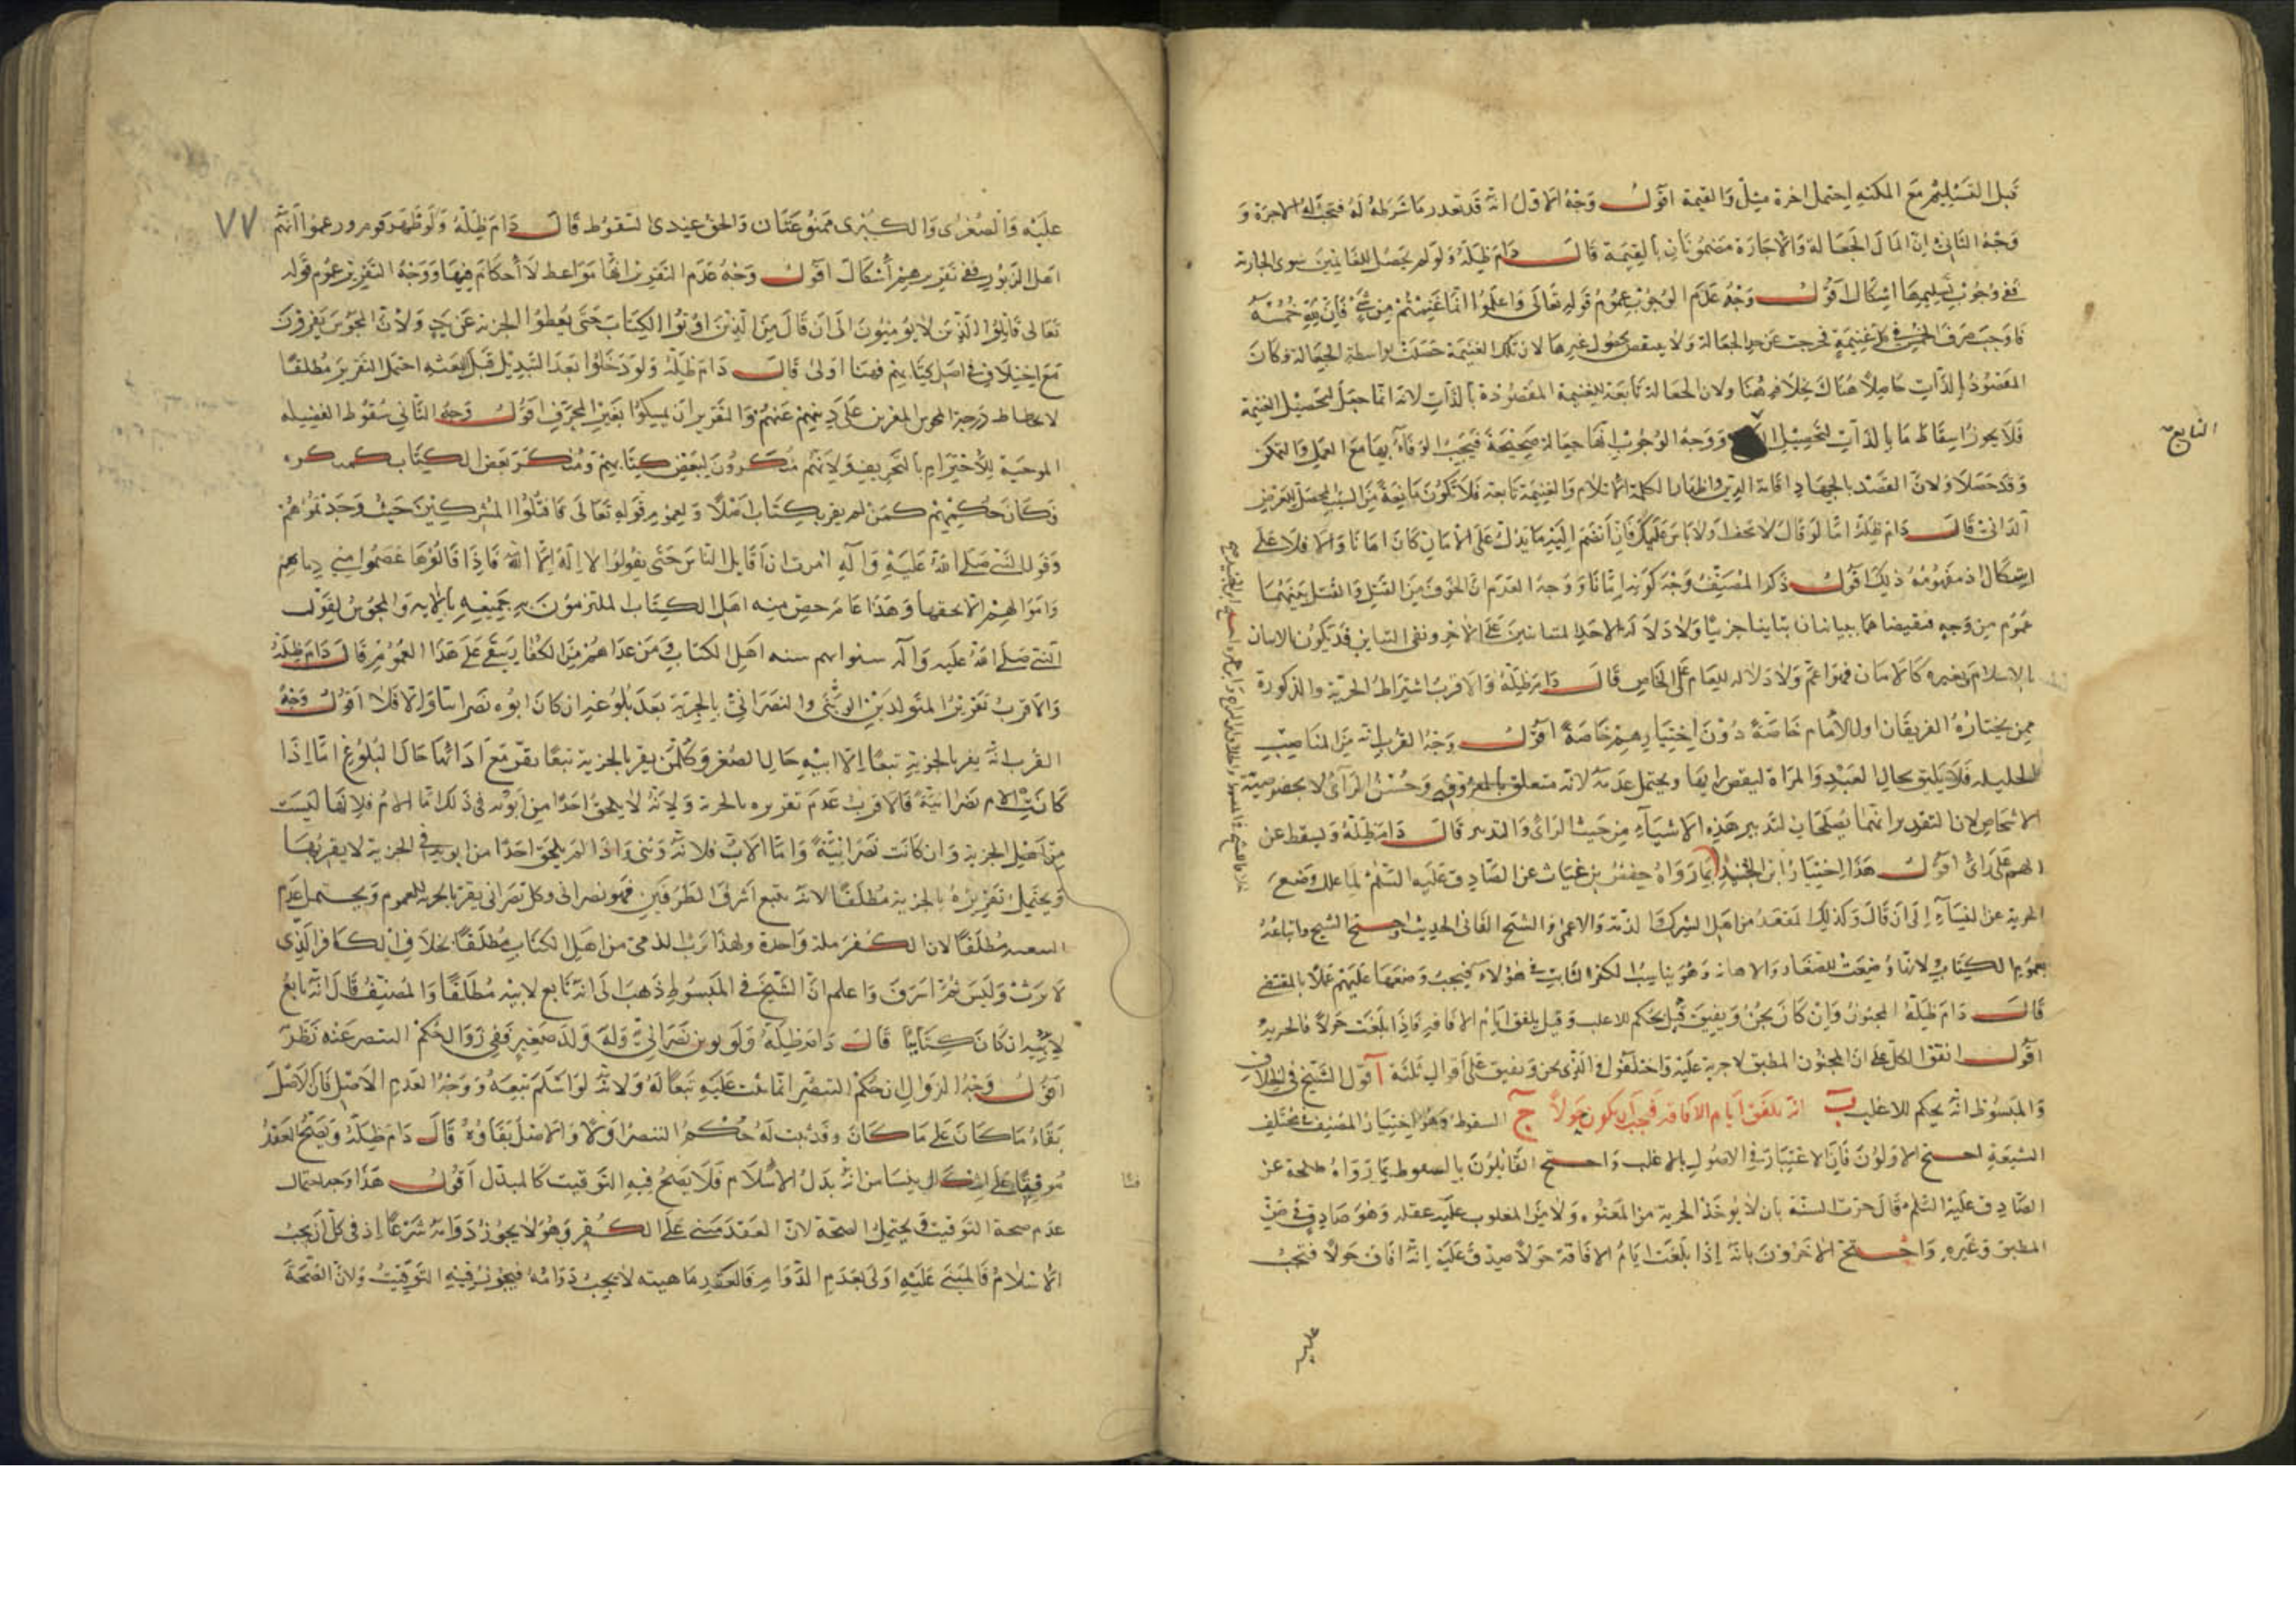 قبل التسليم مع المكنة احتمل اجرة مثل والقيمة اقول وجه الاول انه قد تعذر ما شرطه له فتجب له الاجرة و
وجه الثاني ان المال الجعالة والاجارة مضمونان بالقيمة قال دام ظله ولو لم يحصل للغانمين سوى الجارية
ففي وجوب تسليمها اشكال اقول وجه عدم الوجوب عموم قوله تعالى واعلموا انما غنمتم من شيء فان لله خمسه
فاوجب صرف الخمس في كل غنيمة خرجت عن حد الجعالة ولا ينقض بجعول غيرها لان تلك الغنيمة حصلت بواسطة الجعالة وكان
المقصود بالذات حاصلا هناك بخلاف هنا ولان الجعالة تابعة للغنيمة المقصودة بالذات لانه انما جعل لتحصيل الغنيمة
فلا يجوز اسقاط ما بالذات لتحصيل ووجه الوجوب انها جعالة صحيحة فيجب الوفاء بها مع العمل والتمكن
التابع صح
وقد حصلا ولان القصد بالجهاد اقامة الدين واظهار الكلمة الاسلام والغنيمة تابعة فلا تكون مانعة من السبب المحصل للغرض
الذاتي قال دام ظله اما لو قال لا تخف او لا باس عليك فان انضم اليه ما يدل على الامان كان امانا والا فلا على
اشكال اذ مفهومه ذلك اقول ذكر المصنف وجه كونه امانا ووجه العدم ان الخوف من القتل والقتل بينهما
عموم من وجه فنقيضاهما يتباينان تباينا جزئيا ولا دلالة لاحد المتباينين على الاخر ونفي التباين قد يكون الامان
بالاسلام وبغيره كالامان فهو اعم ولا دلالة للعام على الخاص قال دام ظله والاقرب اشتراط الحرية والذكورة
فمن يختاره الفريقان او للامام خاصة دون اختيارهم خاصة اقول وجه القرب انه من المناصب
الجليلة فلا يليق بحال العبد والمراة لنقص رايها ويحتمل عدمه لانه متعلق بالمعروف وحسن الراي لا بخصوصية
الاشخاص لان التقدير انهما يصلحان لتدبير هذه الاشياء من حيث الراي والتدبير قال دام ظله ويسقط عن
الهم على راي اقول هذا اختيار ابن الجنيد لما رواه حفص بن غياث عن الصادق عليه السلم لما علل وضع
الجزية عن النساء الى ان قال وكذلك المقعد من اهل الشرك والذمة والاعمى والشيخ الفاني الحديث واحتج الشيخ واتباعه
بعموم الكتاب لانها وضعت للصغار والاهانة وهو يناسب الكفر الثابت في هؤلاء فيجب وضعها عليهم عملا بالمقتضي
قال دام ظله المجنون وان كان يجن ويفيق قيل يحكم للاغلب وقيل يلفق ايام الافاقة فاذا بلغت حولا فالجزية
اقول اتفق الكل على ان المجنون المطبق لا جزية عليه واختلفوا في الذي يجن ويفيق على اقوال ثلثة آ قول الشيخ في الخلاف
والمبسوط انه يحكم للاغلب ب انه يلفق ايام الافاقة فيجب ان يكون حولا ج السقوط وهو اختيار المصنف في مختلف
الشيعة احتج الاولون فان الاعتبار في الاصول بالاغلب واحتج القائلون بالسقوط بما رواه طلحة عن
الصادق عليه السلم قال جرت السنة بان لا يؤخذ الجزية من المعتوه ولا من المغلوب عليه عقله وهو صادق في حق
المطبق وغيره واحتج الاخرون بانه اذا بلغت ايام الافاقة حولا صدق عليه انه افاق حولا فتجب
عليه
٧٧
عليه والصغرى والكبرى ممنوعتان والحق عندي السقوط قال دام ظله ولو ظهر قوم وزعموا انهم
اهل الزبور ففي تقريرهم اشكال اقول وجه عدم التقرير انها مواعظ لا احكام فيها ووجه التقرير عموم قوله
تعالى قاتلوا الذين لا يؤمنون الى ان قال من الذين اوتوا الكتاب حتى يعطوا الجزية عن يد ولان المجوس يقرون
مع اختلاف في اصل كتابهم فهنا اولى قال دام ظله ولو دخلوا بعد التبديل قبل البعثة احتمل التقرير مطلقا
لانحطاط درجة المجوس المقرين على دينهم عنهم والتقرير ان تمسكوا بغير المحرف اقول وجه الثاني سقوط الفضيلة
الموجبة للاحترام بالتحريف ولانهم منكرون لبعض كتابهم ومنكر بعض الكتاب كمنكره
فكان حكمهم كمن لم يقر بكتاب اصلا ولعموم قوله تعالى فاقتلوا المشركين حيث وجدتموهم
وقول النبي صلى الله عليه وآله امرت ان اقاتل الناس حتى يقولوا لا اله الا الله فاذا قالوها عصموا مني دماءهم
واموالهم الا بحقها وهذا عام خص منه اهل الكتاب الملتزمون بجميعه بالاية والمجوس لقول
النبي صلى الله عليه وآله سنوا بهم سنة اهل الكتاب فمن عداهم من الكفار يبقى على هذا العموم قال دام ظله
والاقرب تقرير المتولد بين الوثني والنصراني بالجزية بعد بلوغه ان كان ابوه نصرانيا والا فلا اقول وجه
القرب انه يقر بالجزية تبعا لابيه حال الصغر وكل من يقر بالجزية تبعا يقر مع ادائها حال البلوغ اما اذا
كانت الام نصرانية فالاقرب عدم تقريره بالجزية ولانه لا يلحق احدا من ابويه في ذلك اما الام فلانها ليست
من اهل الجزية وان كانت نصرانية واما الاب فلانه وثني واذا لم يلحق احدا من ابويه في الجزية لا يقر بها
ويحتمل تقريره بالجزية مطلقا لانه يتبع اشرف الطرفين فهو نصراني وكل نصراني يقر بالجزية للعموم ويحتمل عدم
التبعية مطلقا لان الكفر ملة واحدة ولهذا يرث الذمي من اهل الكتاب مطلقا بخلاف الكافر الذي
لا يرث وليس ثمة اشرف واعلم ان الشيخ في المبسوط ذهب الى انه تابع لابيه مطلقا والمصنف قال انه تابع
لابيه ان كان كتابيا قال دام ظله ولو توثن نصراني وله ولد صغير ففي زوال حكم التنصر عنه نظر
اقول وجه الزوال ان حكم التنصر انما ثبت عليه تبعا له ولانه لو اسلم تبعه ووجه العدم الاصل فان الاصل
بقاء ما كان على ما كان وقد ثبت له حكم التنصر اولا والاصل بقاؤه قال دام ظله ويصح العقد
موقتا على اشكال ينشا من انه بدل الاسلام فلا يصح فيه التوقيت كالمبدل اقول هذا وجه احتمال
عدم صحة التوقيت ويحتمل الصحة لان العقد مبني على الكفر وهو لا يجوز دوامه شرعا اذ في كل ان يجب
الاسلام فالمبني عليه اولى بعدم الدوام فالعقد ماهيته لا يجب دوامه فيجوز فيه التوقيت ولان الصحة